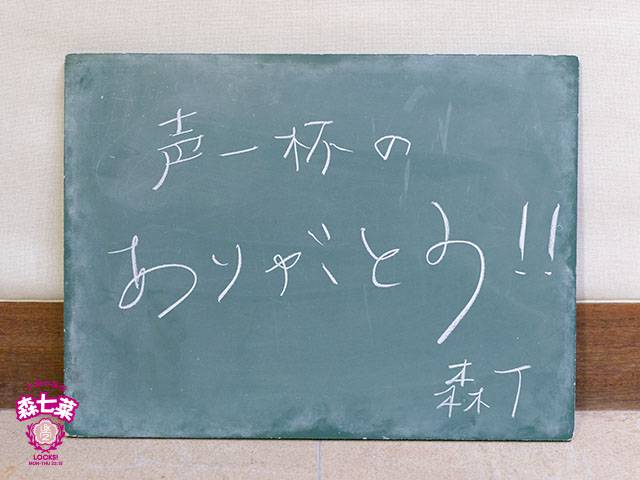 声一杯の
ありがとう!!
森T
森七菜
LOCKS!
MON-THU 22:15